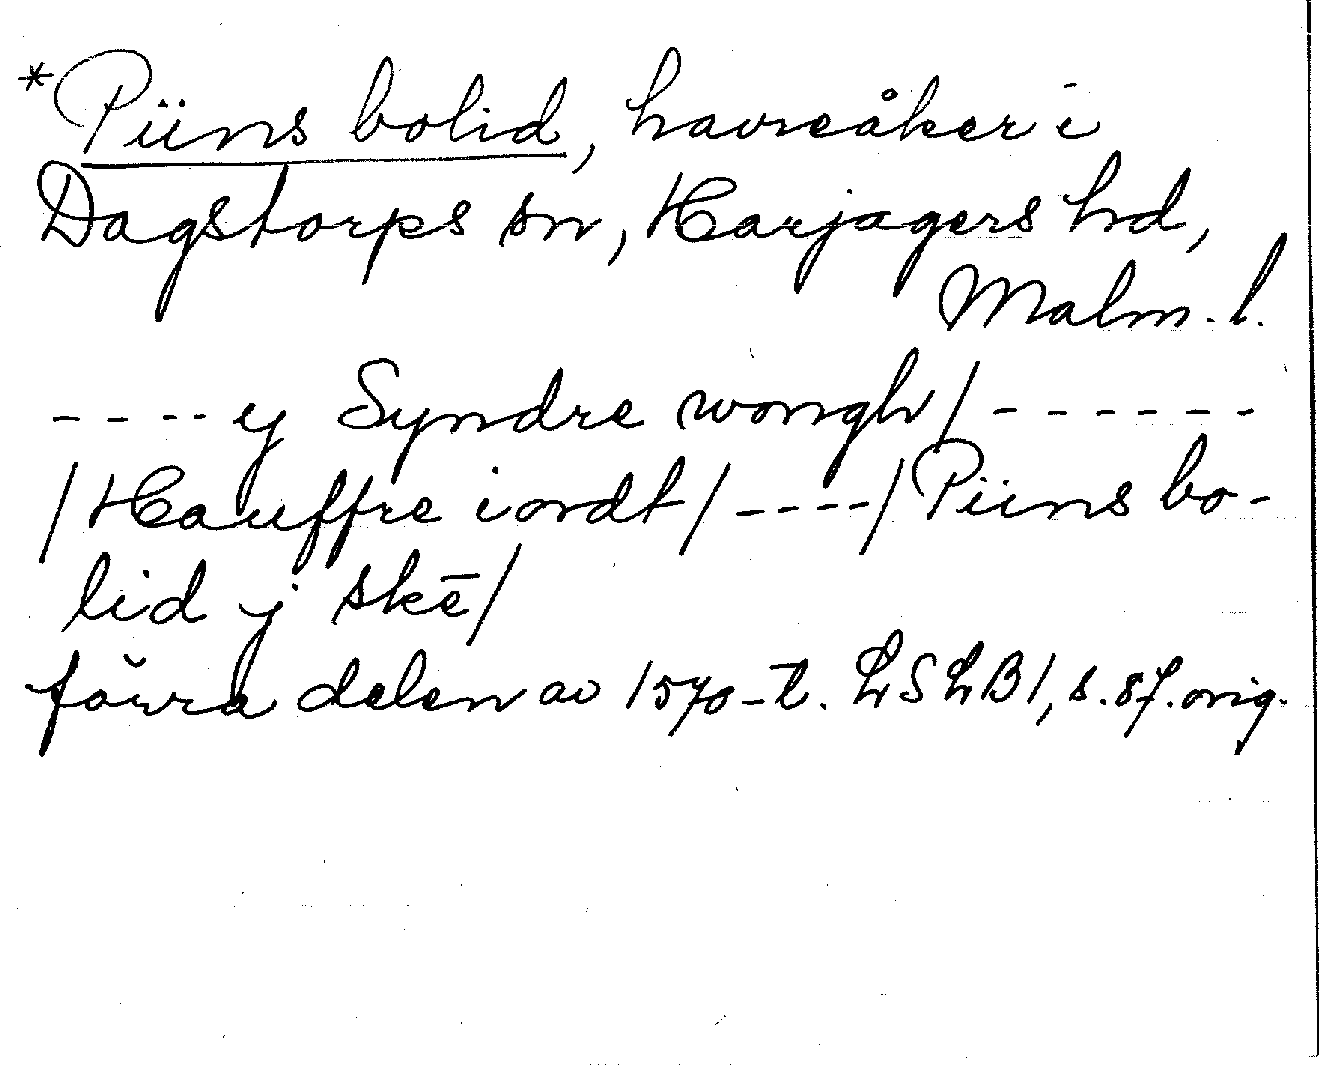 *Piins bolid, havreåker i
Dagstorps sn, Harjagers hd,
Malm. l.
---- y Syndre wongh/ ------
/Hauffre iordt/ ----/ Piins bo-
lid y skē/
förra delen av 1570-t. LSLB1, s. 87. orig.